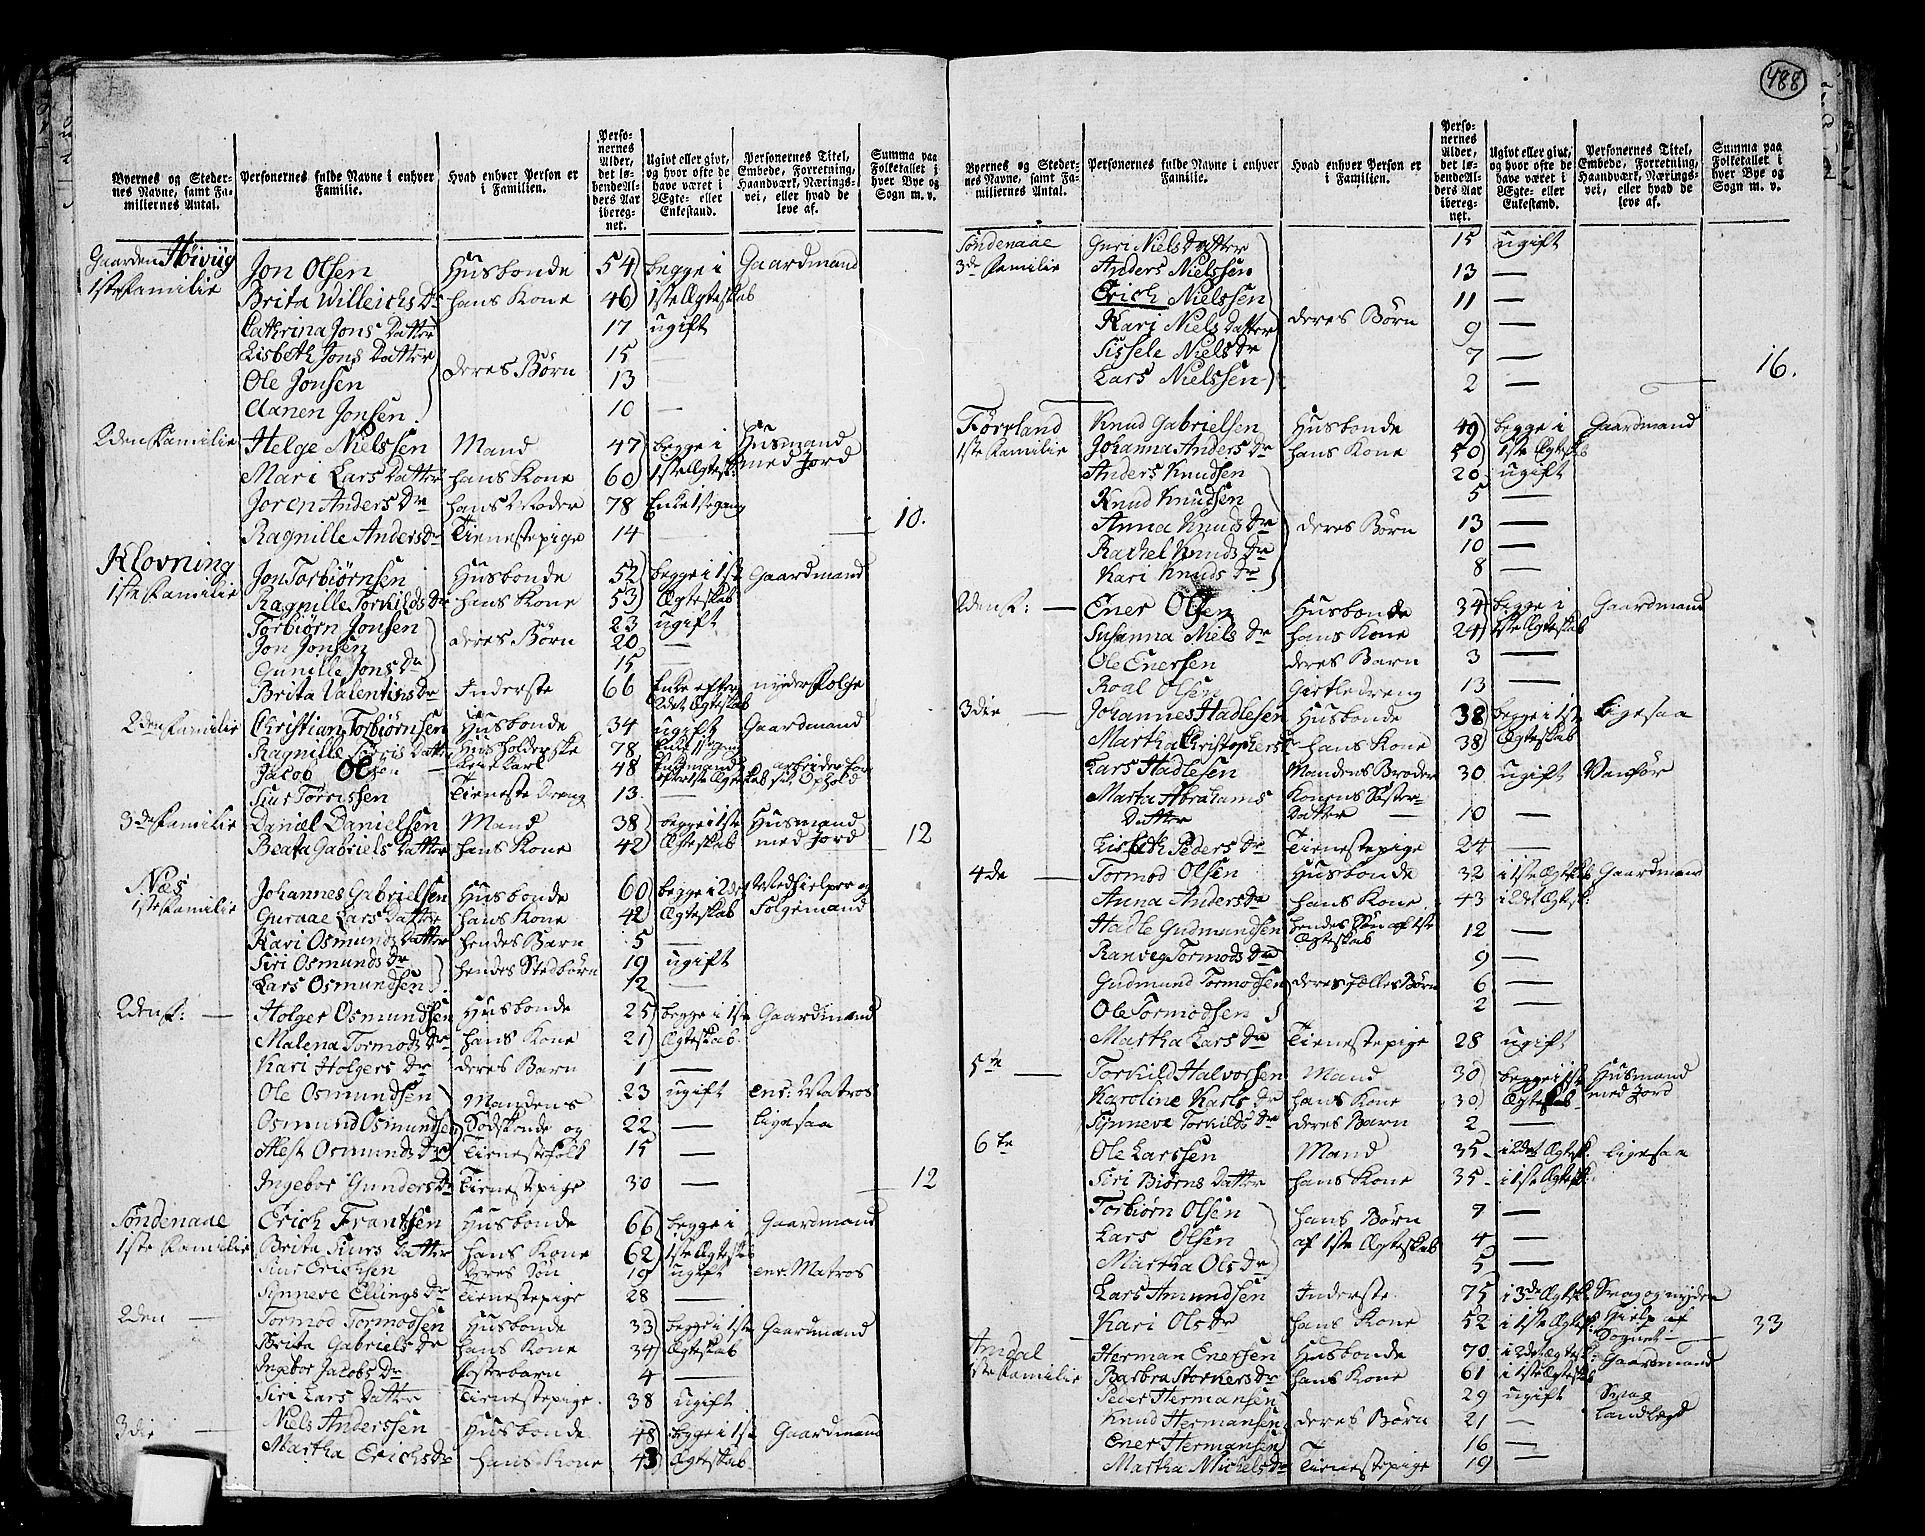 488
Byernes og Steder-nes Navne, samt Fa-miliernes Antal. | Personernes fulde Navne i enhver Familie. | Hvad enhver Person er i Familien. | Perso-nernes Alder, det lø-bende Al-ders Aar iberegnet. | Ugivt eller givt, og hvor ofte de have været i Ægte- eller Enkestand. | Personernes Titel, Embede, Forretning, Haandværk, Nærings-vei, eller hvad de leve af. | Summa paa Folketallet i hver Bye og Sogn m. v.
Gaarden Høivug
1ste Familie | Jon Olsen | Husbonde | 54 | begge i | Gaardmand
Brita Willeichs Dr | hans Kone | 46 | 1ste Ægteskab
Cathrina Jons Datter | 17 | ugift
Lisbeth Jons Datter | 15 | —
Ole Jonsen | deres Børn | 13
Aanen Jonsen | 10 | —
2den Familie | Helge Nielssen | Mand | 47 | begge i | Husmand
Mari Lars Datter | hans Kone | 60 | 1ste Ægtesk: | med Jord
Joren Anders Dr | hans Moder | 78 | Enke 1ste gang
Ragnille Anders Dr | Tienestepige | 14 | — | 10.
Klovning
1ste Familie | Jon Torbiørnsen | Husbonde | 52 | begge i 1ste | Gaardmand
Ragnille Torkilds Dr | hans Kone | 53 | Ægteskab
Torbiørn Jonsen | 23 | ugift
Jon Jonsen | deres Børn | 20 | —
Gunille Jons Dr | 15
Brita Valentins Dr | Inderste | 66 | Enke efter 2det Ægteskab | nyder Folge
2den Familie | Christian Torbiørnsen | Husbonde | 34 | ugift | Gaardmand
Ragnille Datter | Huusholderske | 78 | Enke 1ste gang
Jacob Olsen | 48 | Enkemand efter 1ste Ægteskab | arbeider for sit Ophold
Siur Torrissen | Tieneste Dreng | 13 | —
3de Familie | Daniel Danielsen | Mand | 38 | begge i 1ste | Husmand
Beata Gabriels Datter | hans Kone | 42 | Ægteskab | med Jord | 12
Næs
1ste Familie | Johannes Gabrielsen | Husbonde | 60 | begge i 2det | Medhielper og
Guraae Lars Datter | hans Kone | 42 | Ægteskab | Folgemand
Kari Osmunds Datter | hendes Barn | 5 | —
Siri Osmunds Dr | hendes Stedbørn | 19 | ugift
Lars Osmundsen | 12 | —
2den F: — | Holger Osmundsen | Husbonde | 25 | begge i 1ste | Gaardmand
Malena Tormods Dr | hans Kone | 21 | Ægteskab
Kari Holgers Dr | deres Barn | 1 | —
Ole Osmundsen | Mandens | 23 | ugift | enr: Matros
Osmund Osmundsen | Sødskende og | 22 | — | ligesaa
Alest Osmunds Dr | Tienestefolk | 15 | —
Ingebor Gunders Dr | Tienestepige | 30 | — | 12
Søndenaae | Erich Frantsen | Husbonde | 66 | begge i | Gaardmand
1ste Familie | Brita Siurs Datter | hans Kone | 62 | 1ste Ægteskab
Siur Erichsen | deres Søn | 19 | ugift | enr: Matros
Synneve Ellings Dr | Tienestepige | 28 | —
2den — | Tormod Tormodsen | Husbonde | 33 | begge i 1ste | Gaardmand
Brita Gabriels Dr | hans Kone | 34 | Ægteskab
Ingebor Jacobs Dr | Fosterbarn | 4 | —
Siri Lars Datter | Tienestepige | 38 | ugift
3die — | Niels Anderssen | Husbonde | 48 | begge i 1ste | Gaardmand
Martha Erichs Dr | hans Kone | 43 | Ægteskab
Byernes og Steder-nes Navne, samt Fa-miliernes Antal. | Personernes fulde Navne i enhver Familie. | Hvad enhver Person er i Familien. | Perso-nernes Alder, det lø-bende Al-ders Aar iberegnet. | Ugivt eller givt, og hvor ofte de have været i Ægte- eller Enkestand. | Personernes Titel, Embede, Forretning, Haandværk, Nærings-vei, eller hvad de leve af. | Summa paa Folketallet i hver Bye og Sogn m. v.
Søndenaae | Guri Niels Datter | 15 | ugift
3de Familie | Anders Nielssen | 13 | —
Erich Nielssen | 11 | —
Kari Niels Datter | deres Børn | 9 | —
Sissele Niels Dr | 7 | —
Lars Nielssen | 2 | — | 16.
Førreland | Knud Gabrielsen | Husbonde | 49 | begge i | Gaardmand
1ste Familie | Johanna Anders Dr | hans Kone | 50 | 1ste Ægteskab
Anders Knudsen | 20 | ugift
Knud Knudsen | 5 | —
Anna Knuds Dr | deres Børn | 13 | —
Rachel Knuds Dr | 10 | —
Kari Knuds Dr | 8 | —
2den F: — | Ener Olsen | Husbonde | 34 | begge i | Gaardmand
Susanna Niels Dr | hans Kone | 24 | 1ste Ægteskab
Ole Enersen | deres Barn | 3 | —
Roal Olsen | Gietledreng | 13 | —
3die — | Johannes Hadlesen | Husbonde | 38 | begge i 1ste | Ligesaa
Martha Christophers Dr | hans Kone | 38 | Ægteskab
Lars Hadlesen | Mandens Broder | 30 | ugift | Vanfør
Marta Abrahams Datter | Konens Søster-Datter | 10 | —
Lisbeth Peders Dr | Tienestepige | 24 | —
4de — | Tormod Olsen | Husbonde | 32 | i 1ste Ægtesk: | Gaardmand
Anna Anders Dr | hans Kone | 43 | i 2det Ægtesk:
Hadle Gudmundsen | hendes Søn af 1ste Ægteskab | 12 | —
Ranveg Tormods Dr | 9 | —
Gudmund Tormodsen | deres fælles Børn | 6 | —
Ole Tormodsen | 2 | —
Martha Lars Dr | Tienestepige | 28 | ugift
5te — | Torkild Halvorsen | Mand | 30 | begge i 1ste | Husmand
Karoline Karls Dr | hans Kone | 30 | Ægteskab | med Jord
Synneve Torkilds Dr | deres Barn | 2 | —
6te | Ole Larssen | Mand | 35 | i 2det Ægtesk. | ligesaa
Siri Biørns Datter | hans Kone | 35 | i 1ste Ægtesk.
Torbiørn Olsen | hans Børn | 7 | —
Lars Olsen | af 1ste Ægteskab | 4 | —
Martha Ols Dr | 5 | —
Lars Amundsen | Inderste | 75 | i 3de Ægtesk: | Svag og nyder
Kari Ols Dr | hans Kone | 52 | i 1ste Ægtesk: | Hielp af Sognet | 33
Amdal | Herman Enersen | Husbonde | 70 | i 2det Ægtesk: | Gaardmand
1ste Familie | Barbra Storkers Dr | hans Kone | 61 | i 1ste Ægteskab
Peder Hermansen | 29 | ugift | Svag
Knud Hermansen | deres Børn | 21 | — | Landlagt
Ener Hermansen | 16 | —
Martha Michels Dr | Tienestepige | 19 | —